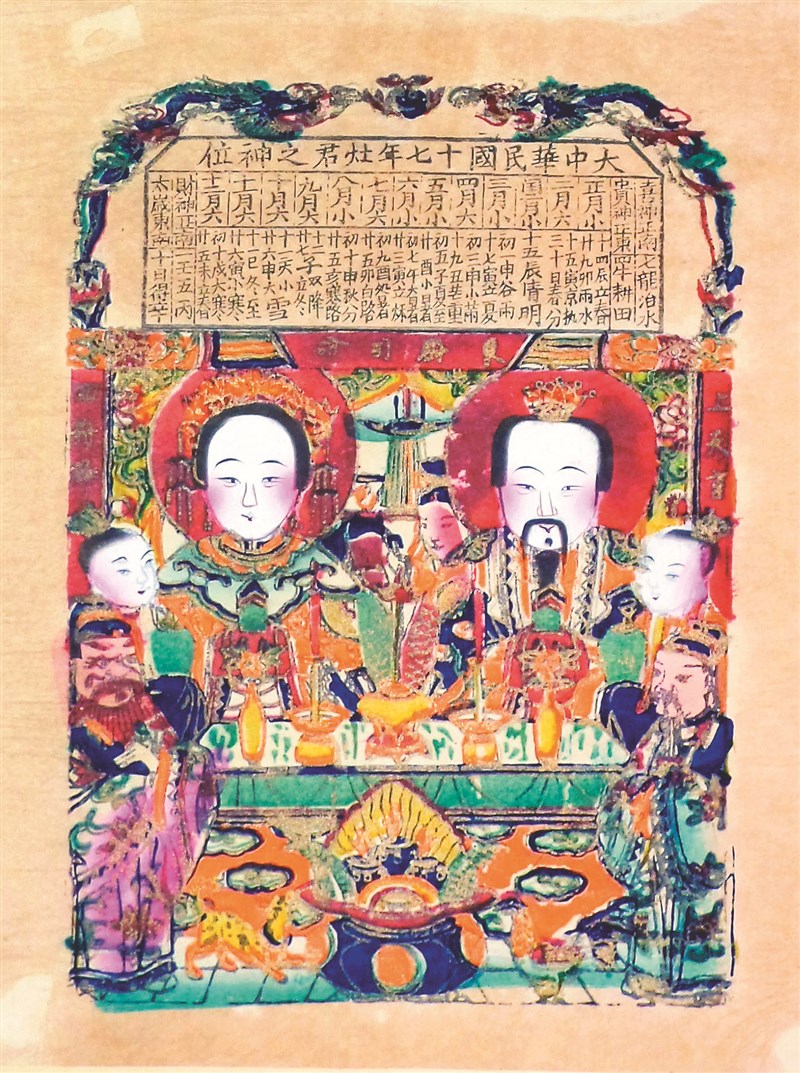 大中華民國十七年灶君之神位
喜神正南七龍治水
貴神正東四牛耕田
正月小
十四辰立春
廿九卯雨水
二月六
十五寅京执
三十日者分
閏二月小
十五辰清明
三月小
初一申谷雨
十七寅立夏
四月六
初三申小滿
十九丑芒重
五月小
初五子夏至
廿酉小日者
六月小
初七午大日者
廿三寅立秌
七月六
初九酉処暑
廿五卯白路
八月小
初十申秋分
廿五亥寒路
九月大
十二子双降
廿七子立冬
十月六
十二亥小雪
廿六申大
十一月六
十一巳冬至
廿六寅小寒
十二月六
初十戌大寒
廿五未立春
財神正南一壬五丙
太歲東南十日得辛
東廚司命
上天百